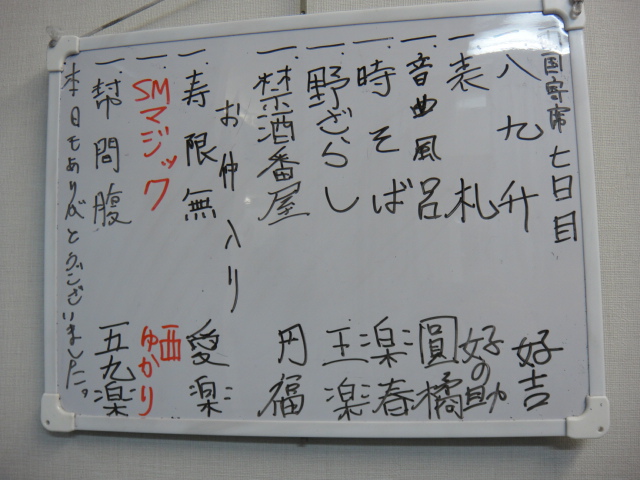 両国寄席 七日目
一.八九升 好吉
一.表札 好の助
一.音曲風呂 圓橘
一.時そば 楽春
一.野ざらし 王楽
一.禁酒番屋 円福
お仲入り
一.寿限無 愛楽
一.SMマジック 西ゆかり
一.幇間腹 五九楽
本日もありがとうございました。